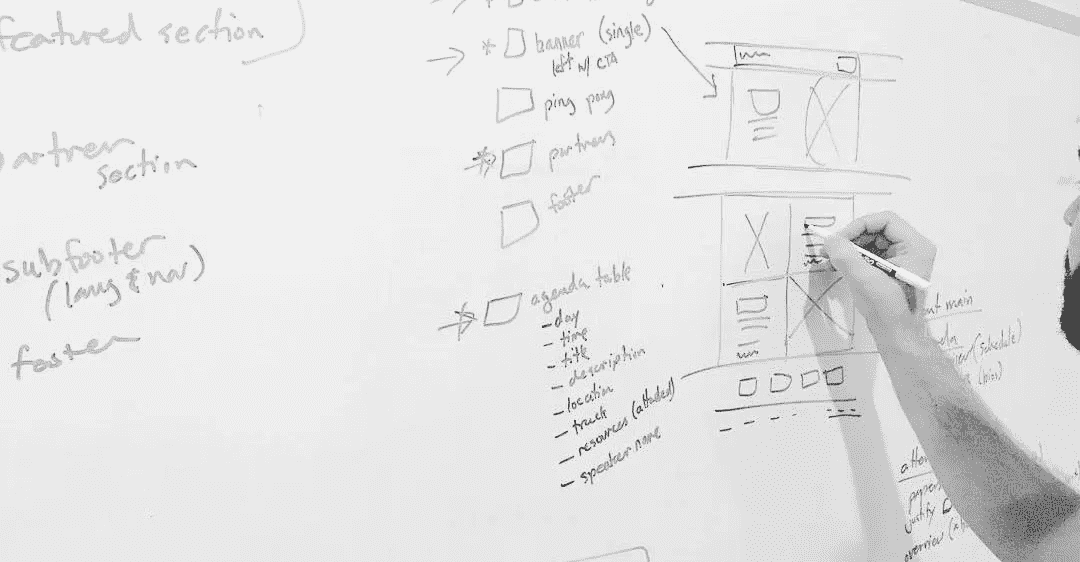 featured section
section
subfooter
(lang & nav)
footer
* banner (single)
left w/ CTA
ping pong
* partners
footer
agenda table
– day
– time
– title
– description
– location
– track
– resources (attached)
– speaker name
main
(schedule)
(bios)
justify
overview